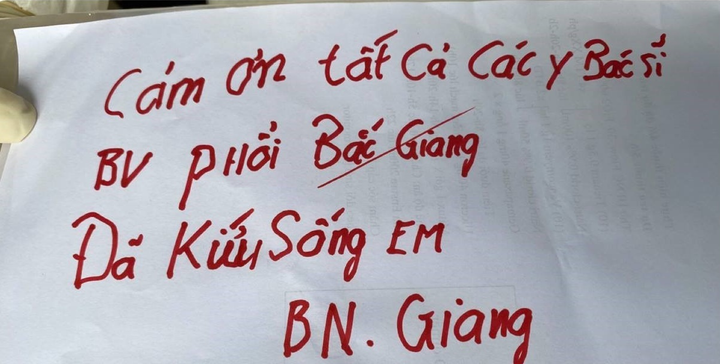 Cám ơn tất Cả Các y Bác sĩ
BV PHổi Bắc Giang
Đã Kứu Sống EM
BN. Giang